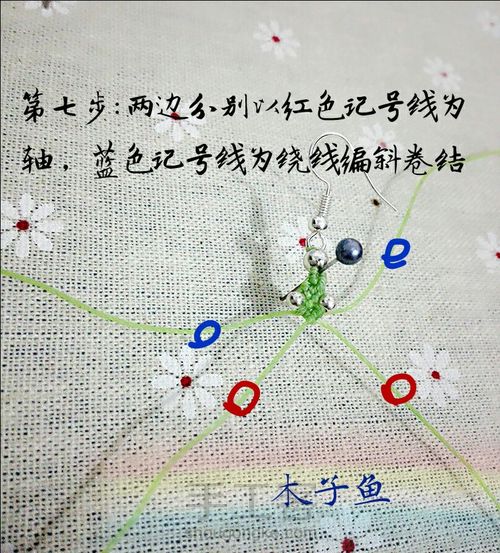 第七步:两边分别以红色记号线为
轴，蓝色记号线为绕线编斜卷结
木子鱼